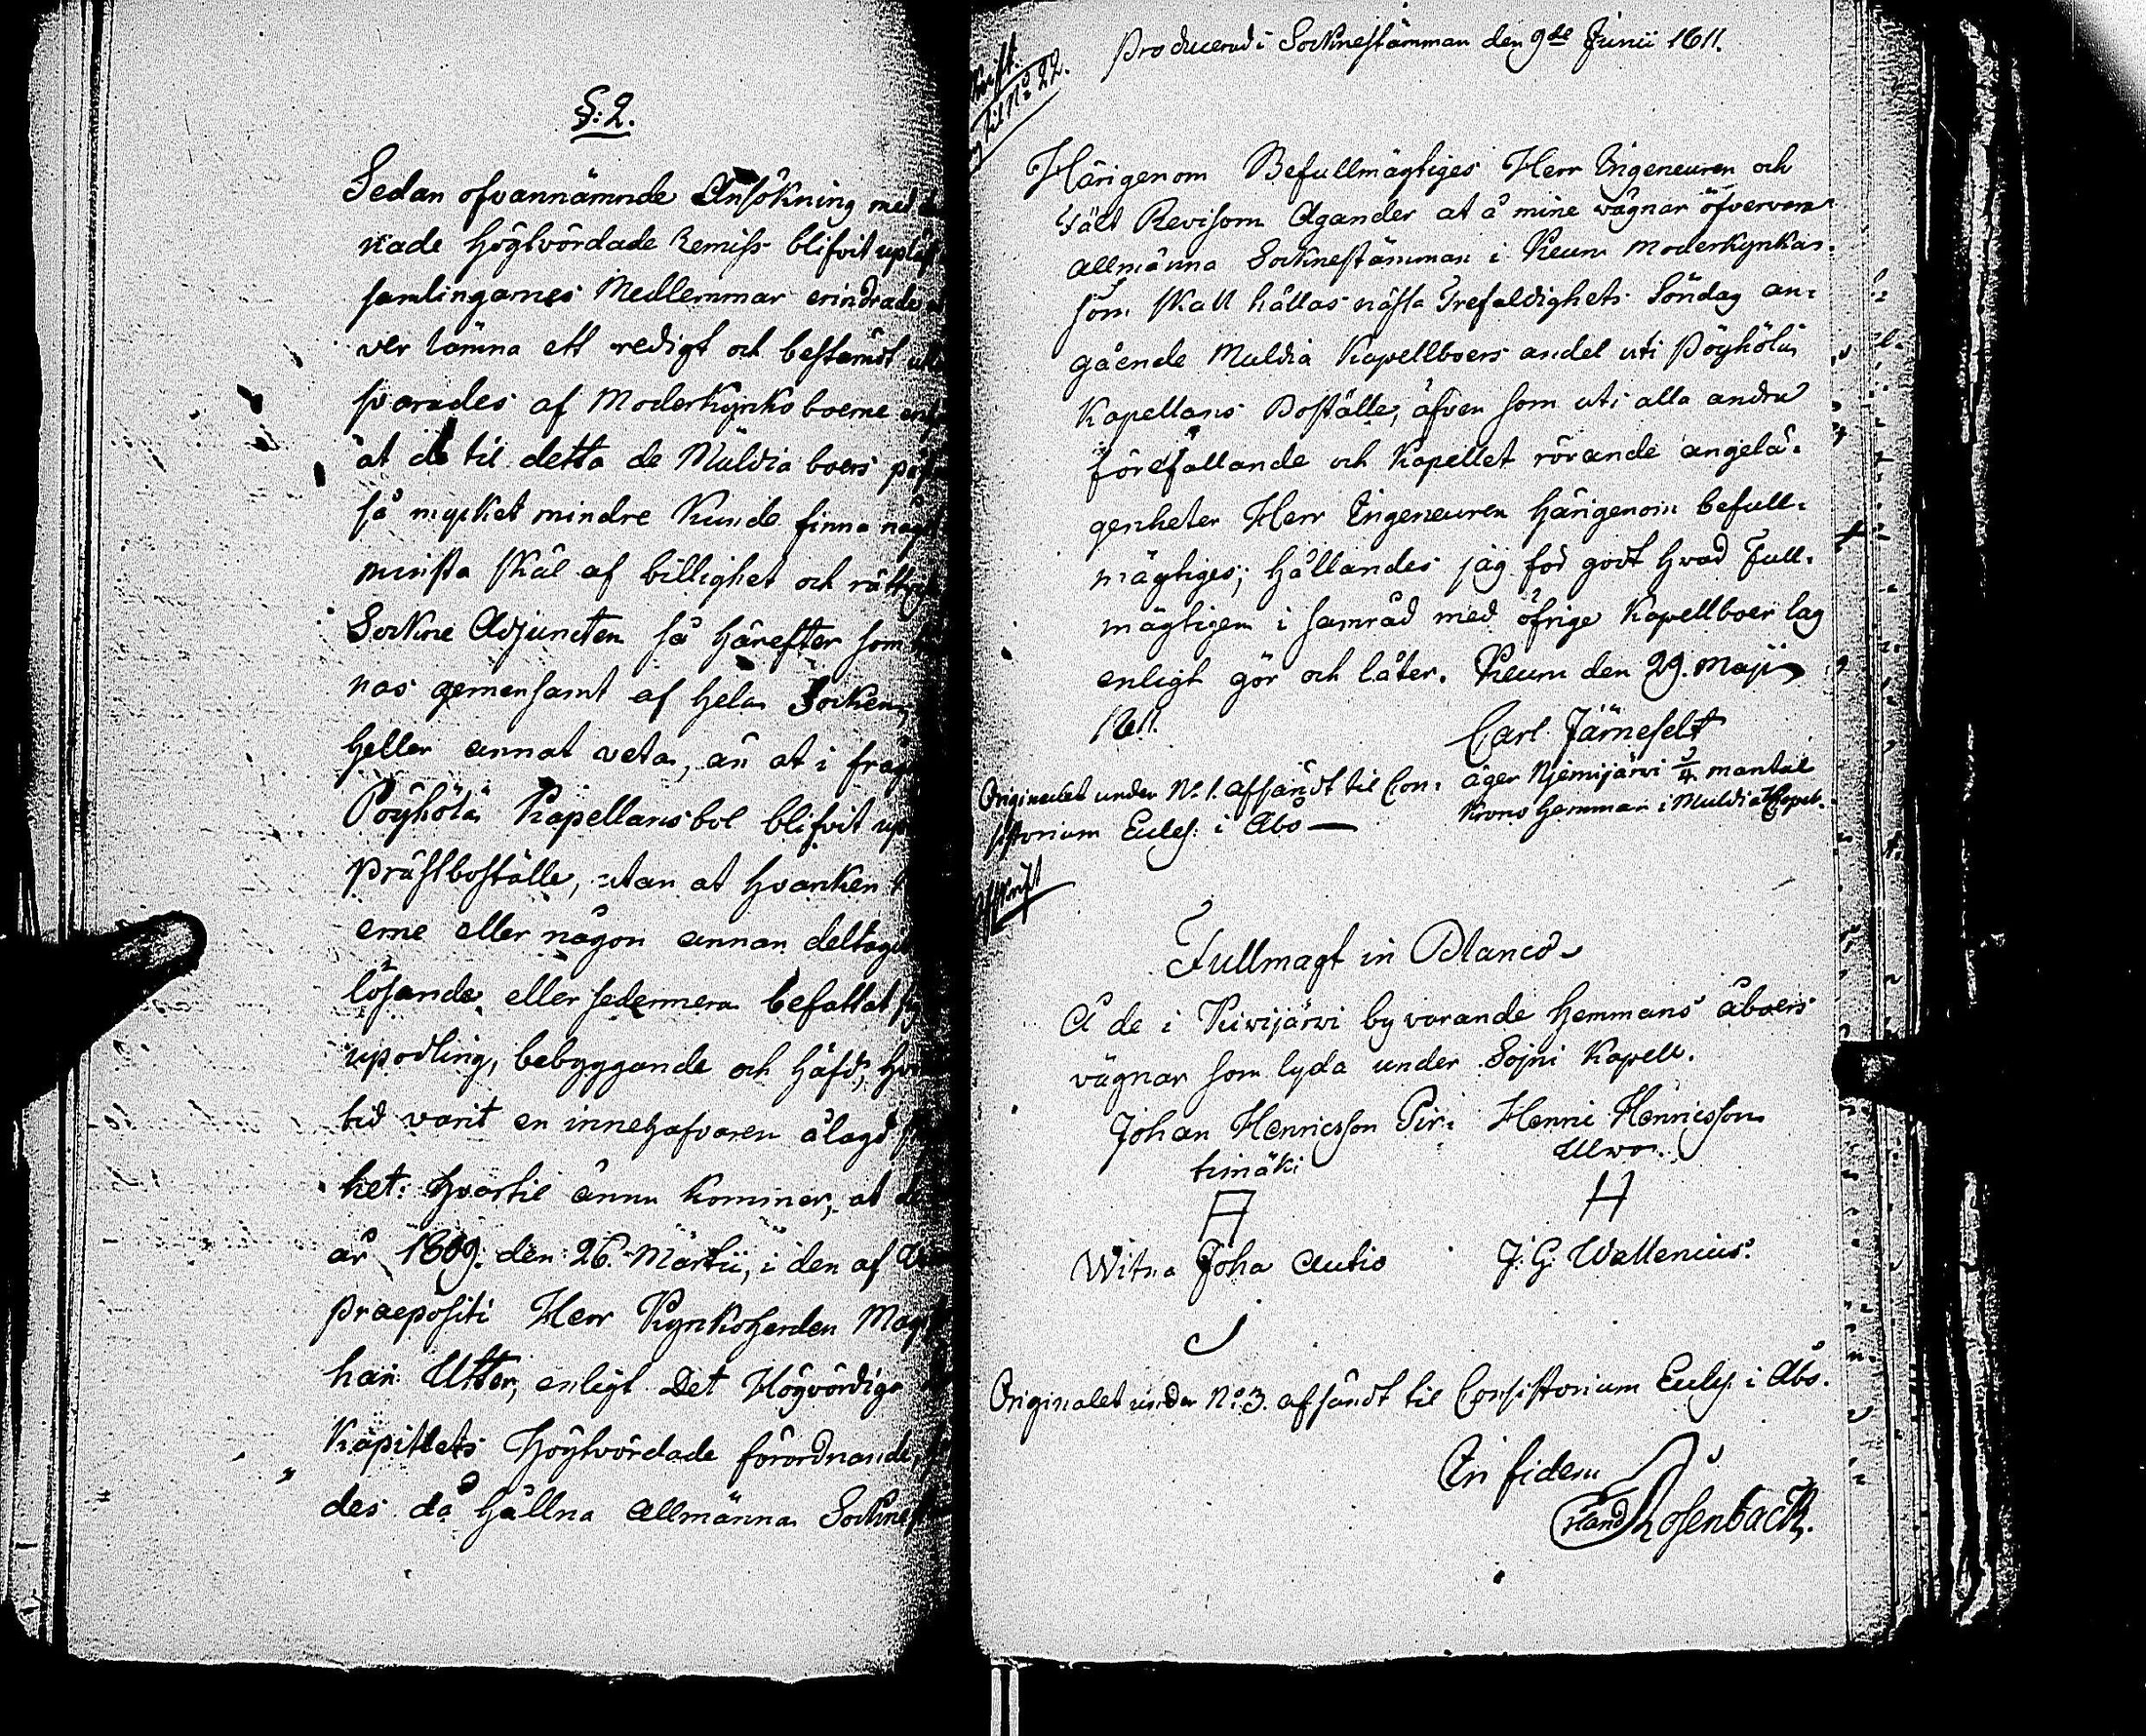 §: 2.
Sedan ofvannämnde Ansökning med
nade högtvördade Remiss blifvit upläst
samlingarnes Medlemmar erindrade
ver lämna ett redigt och bestämdt
svarades af Moderkyrko boerne
at de til detta de Muldia boers
så mycket mindre kunde finna något
minsta skäl af billighet och
Sockne Adjuncten så härefter som
nas gemensamt af hela Socken,
heller annat veta, än at i
Pöyhölä Kapellansbol blifvit
Prästboställe, utan at hvarken
erne eller någon annan deltagit
lösande eller sedermera befattat
upodling, bebyggande och häfd,
tid varit en innehafvaren ålagd
het: hvartil ännu kommer, at
år 1809. den 26. Martii, i den af
Praepositi Herr Kyrkoherden
han Utter, enligt Det Högvördiga
Kapitlets Högtvördade förordnande,
des då hållna allmänna
Producerad i Socknestämman den 9de Junii 1811.
til No 22.
Härigenom Befullmägtiges Herr Ingeneuren och
Fält Revisorn Agander at å mine vägnar öfvervara
allmänna Socknestämman i Keuru Moderkyrka
som skall hållas nästa Trefaldighets Söndag an-
gående Muldia Kapellboers andel uti Pöyhölä
Kapellans Boställe, äfven som uti alla andra
förefallande och Kapellet rörande angelä-
genheter Herr Ingeneuren härigenom befull-
mägtiges; hållandes jag för godt hvad Full-
mägtigen i samråd med öfrige Kapellboer lag
enligt gör och låter. Keuru den 29. Maji
1811.
Carl Järnefelt
äger Njemijärvi 3/4 mantal
Krono hemman i Muldia Kapell.
Originalet under No. 1. afsändt til Con-
sistorium Eccles: i Åbo
Afskrift
Fullmagt in Blanco
Å de i Kivijärvi by varande hemmans åboers
vägnar som lyda under Sojni Kapell.
Johan Henricsson Pir-
timäki
Henric Henricsson
Ulvo
H
Witna Joha Autio
J. G. Wallenius.
Originalet under No. 3. afsändt til Consistorium Eccles: i Åbo.
In fidem
Rosenback.